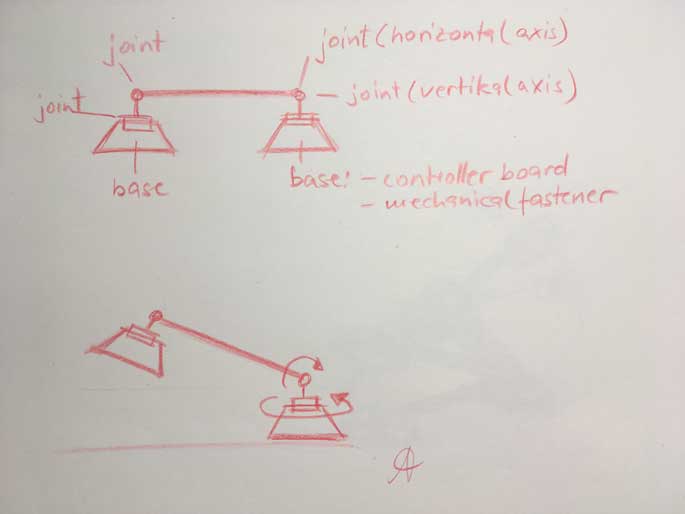 joint
joint (horizontal axis)
joint
joint (vertikal axis)
base
base: - controller board
- mechanical fastener